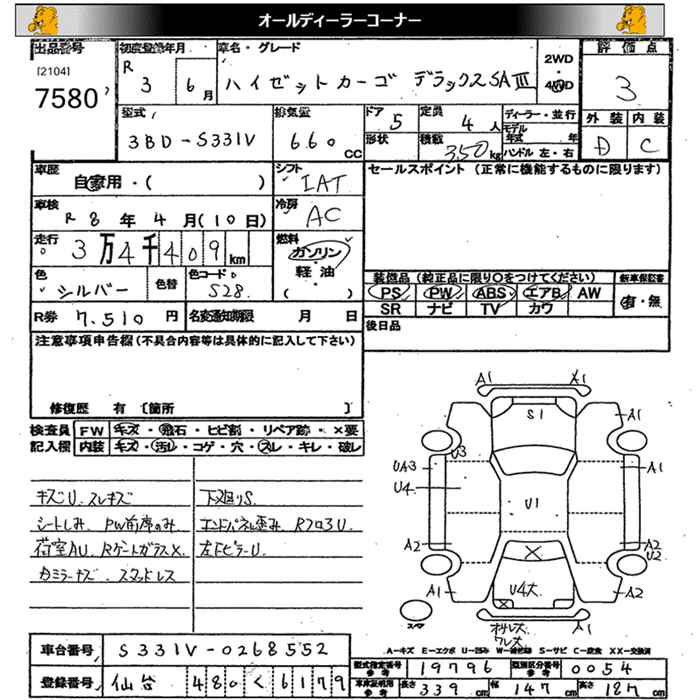 オールディーラーコーナー
出品番号
[2104]
7580
初度登録年月
R 3 6月
車名・グレード
ハイゼットカーゴ デラックスSAⅢ
2WD
4WD
評価点
3
外装 内装
D C
型式
3BD-S331V
排気量
660 cc
ドア 5
形状
定員 4人
積載 350 kg
ディーラー・並行
モデル年式 年
ハンドル 左・右
車歴
自家用・( )
シフト
IAT
車検
R 8年 4月(10日)
冷房
AC
走行
3万4千409km
燃料
ガソリン
軽油
( )
色
シルバー
色替
色コード
S28
R券 7,510円
名変通知期限 月 日
セールスポイント(正常に機能するものに限ります)
装備品(純正品に限り○をつけてください)
PS PW ABS エアB AW
SR ナビ TV カワ
新車保証書
有・無
後日品
注意事項申告欄(不具合内容等は具体的に記入して下さい)
修復歴 有〔箇所 〕
検査員記入欄
FW キズ・飛石・ヒビ割・リペア跡・×要
内装 キズ・汚レ・コゲ・穴・スレ・キレ・破レ
キズU スレキズ
シートしみ PW前席のみ
荷室AU RゲートガラスX
カミラーキズ スタッドレス
下廻りS
エンドパネル歪み Rフロ3U
左FピラーU
A1 A1
S1
A1
U3
UA3
U4
A1
U1
A2
A2
U2
A1
U4大
A1
スマ
オサレズ
ワレズ
A-キズ E-エクボ U-凹み W-補修跡 S-サビ C-腐食 XX-交換済
車台番号 S331V-0268552
登録番号 仙台 480 く 6179
型式指定番号 参考 19796
類別区分番号 参考 0054
車庫証明用 参考 長さ 339cm 幅 147cm 高さ 187cm